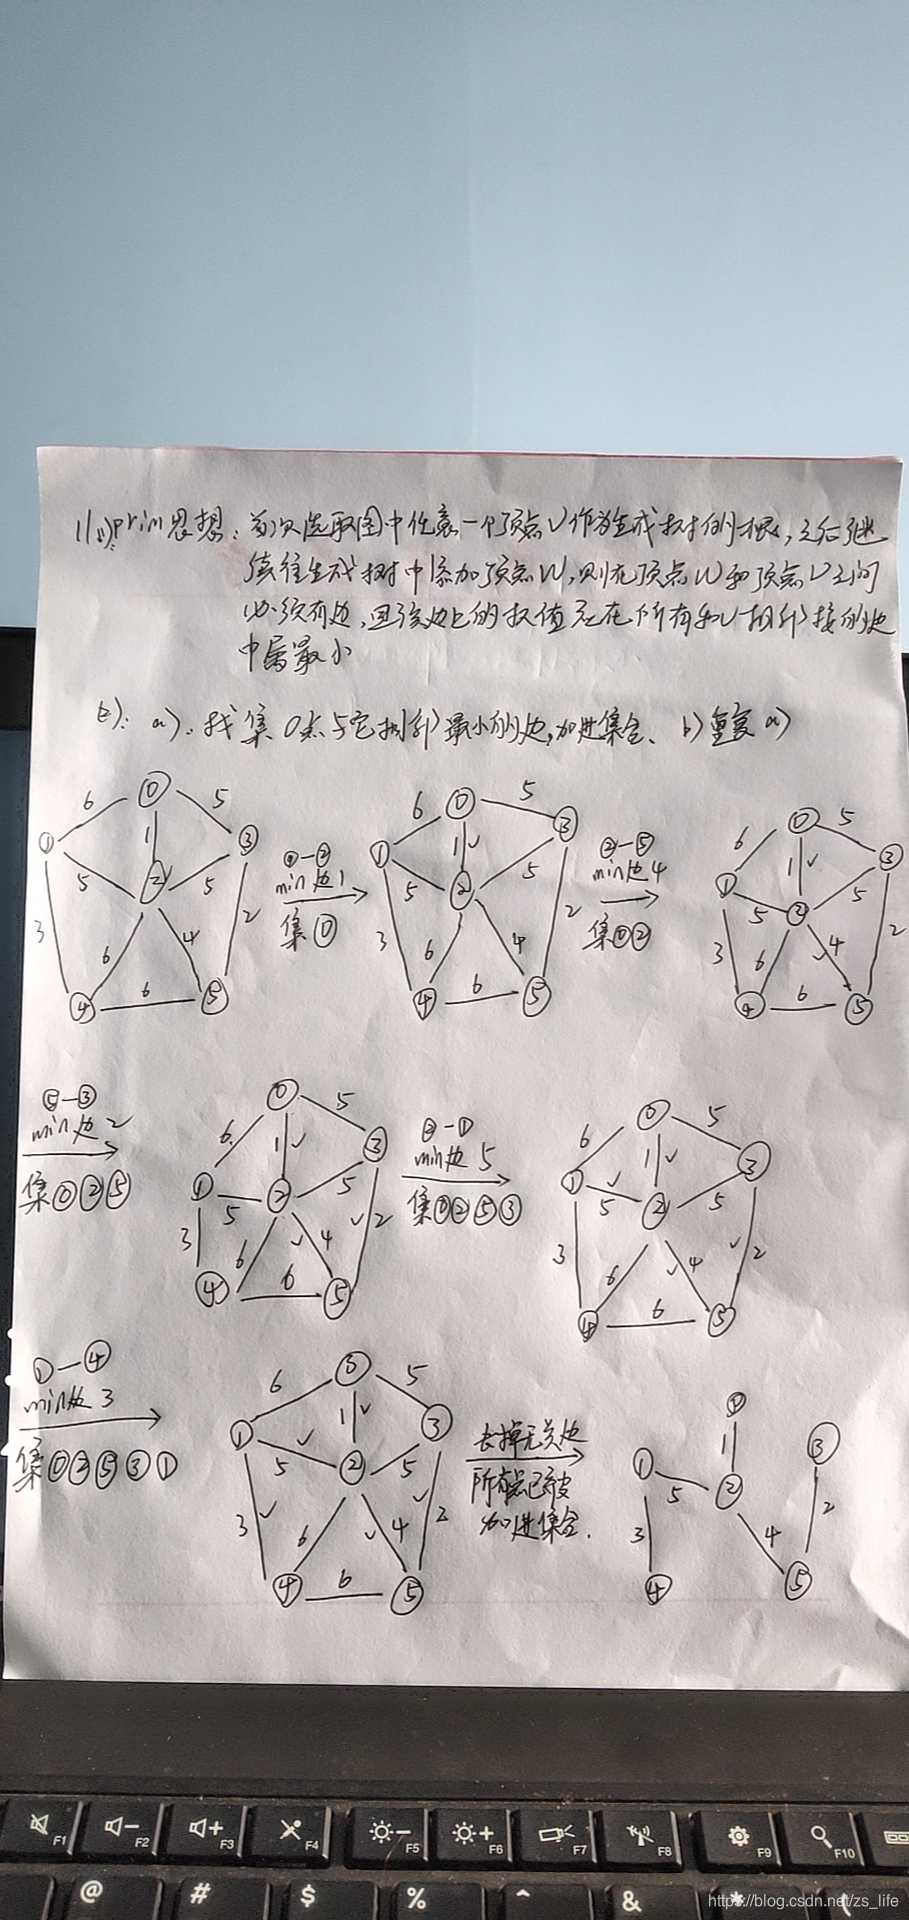 11(1): prim思想: 首次选取图中任意一个顶点V作为生成树的根,之后继
续往生成树中添加顶点W,则在顶点W和顶点V之间
必须有边,且该边上的权值在所有和V相邻接的边
中属最小
2): a). 找集0点与它相邻最小的边,加进集合、b)重复a)
0 6 5 1 1 3 2 5 5 3 6 4 2 4 6 5
0—2
min边1
集0
0 6 5 1 1 3 2 5 5 3 6 4 2 4 6 5
2—5
min边4
集02
0 6 5 1 1 3 2 5 5 3 6 4 2 4 6 5
5—3
min边2
集025
0 6 5 1 1 3 2 5 5 3 6 4 2 4 6 5
2—1
min边5
集0253
0 6 5 1 1 3 2 5 5 3 6 4 2 4 6 5
1—4
min边3
集02531
0 6 5 1 1 3 2 5 5 3 6 4 2 4 6 5
去掉无关边
所有点已被
加进集合.
0 1 3 1 5 2 3 4 2 4 5
F1 F2 F3 F4 F5 F6 F7 F8 F9 F10
@ # $ % ^ & * (
https://blog.csdn.net/zs_life